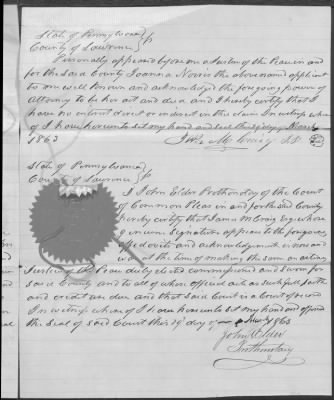 State of Pennsylvania }
County of Lawrence } ss
Personally appeared before me a Justice of the Peace in and
for the said County Joanna Norris the above named applicant
to me well known and acknowledged the foregoing power of
Attorney to be her act and deed and I hereby certify that I
have no interest direct or indirect in the claim In witness where
of I have hereunto set my hand and seal this day of March
1863
State of Pennsylvania }
County of Lawrence } ss
I John Elder Prothonotary of the Court
of Common Pleas in and for the said County
hereby certify that Craig Esq whose
genuine Signature appears to the foregoing
affidavits and acknowledgment is now and
was at the time of making the same an acting
Justice of the Peace duly elected commissioned and sworn for
said County and to all whose official acts as such full faith
and credit are due and that said Court is a Court of record
In witness whereof I have hereunto set my hand and affixed
the Seal of said Court this day of 1863
John Elder
Prothonotary